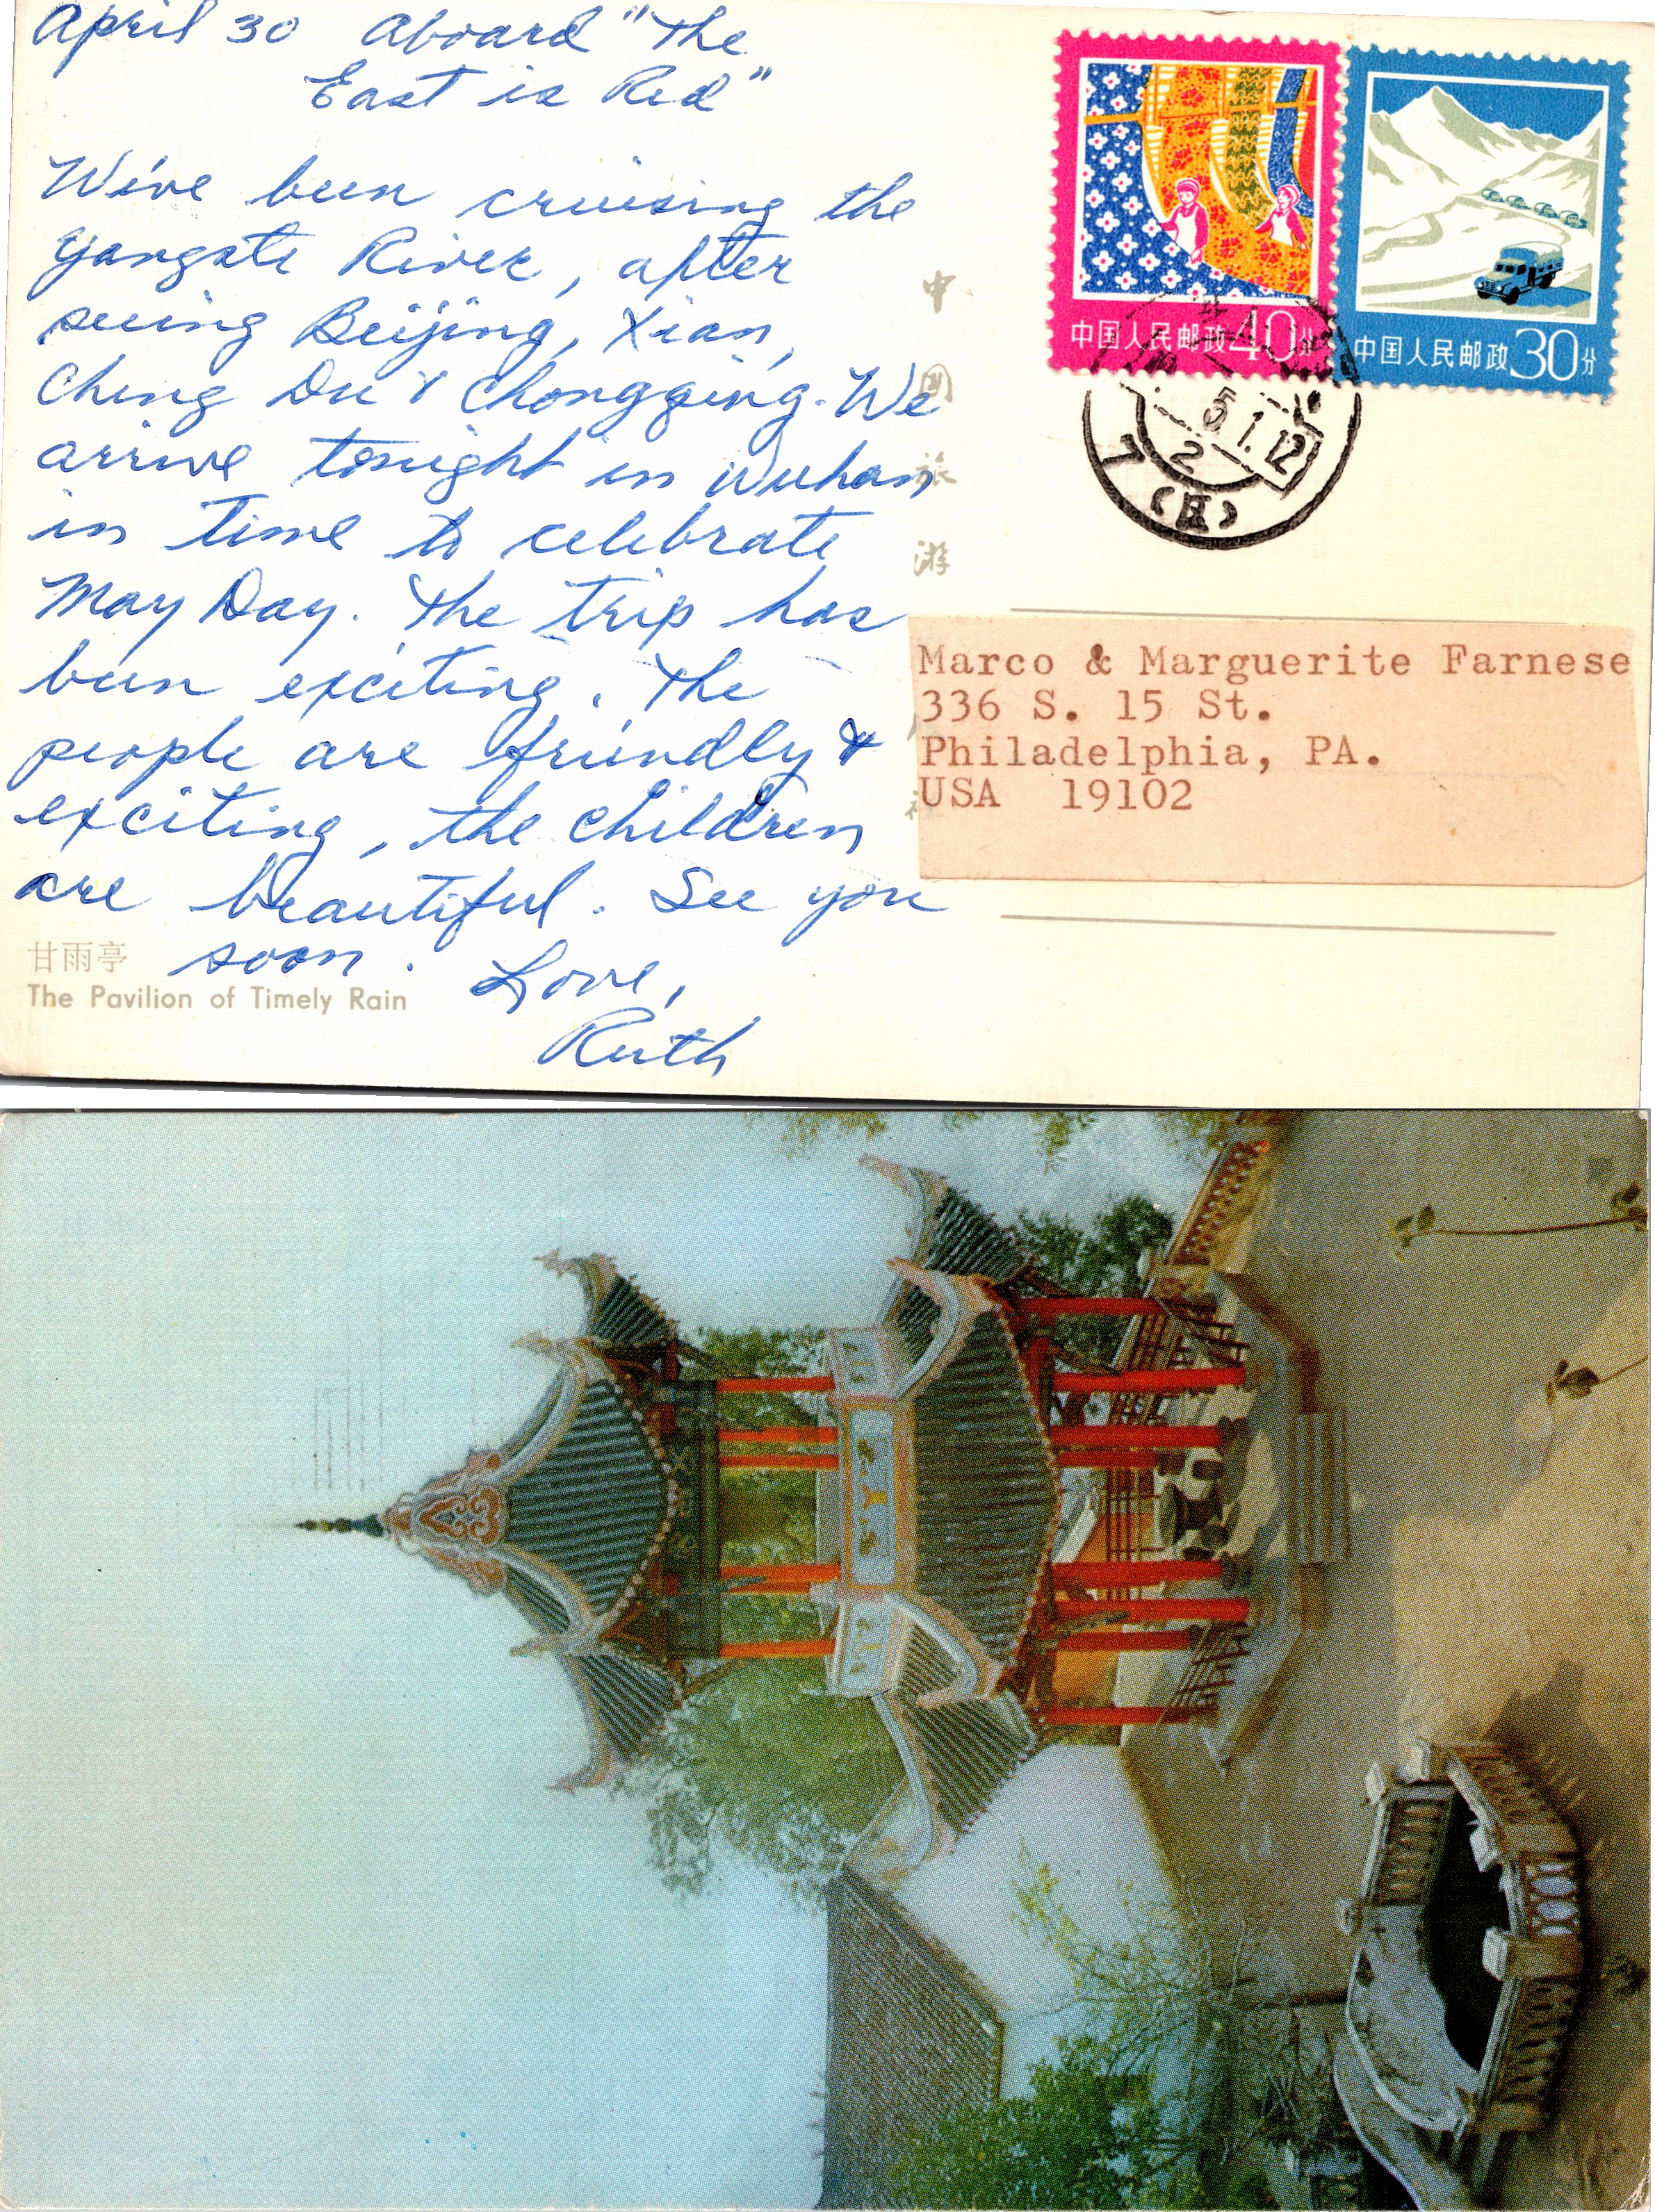 April 30 Aboard "The
East is Red"
We've been cruising the
Yangste River, after
seeing Beijing, Xian,
Ching Du & Chongqing. We
arrive tonight in Wuhan
in time to celebrate
May Day. The trip has
been exciting. The
people are friendly &
exciting, the children
are beautiful. See you
soon. Love,
Ruth
甘雨亭
The Pavilion of Timely Rain
中
国
旅
游
中国人民邮政 40分
中国人民邮政 30分
5.1.12
2
7
Marco & Marguerite Farnese
336 S. 15 St.
Philadelphia, PA.
USA 19102